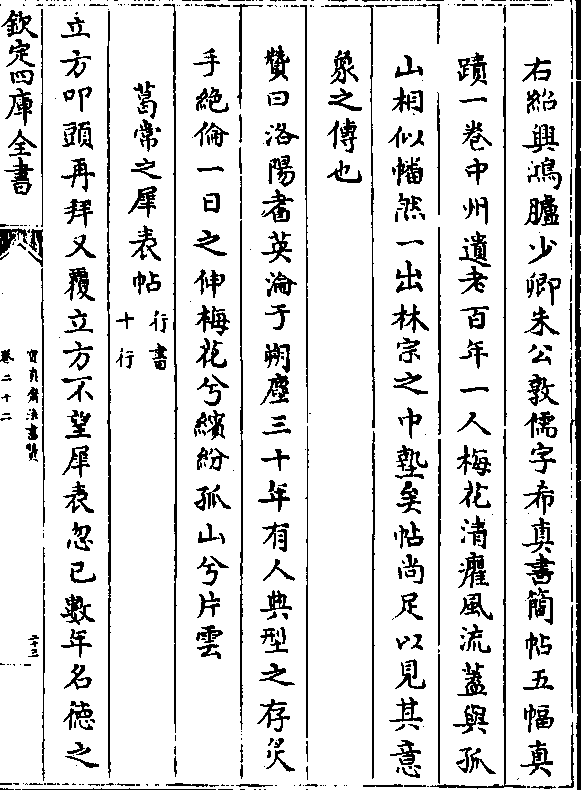 右紹興鴻臚少卿朱公敦儒字希真書簡帖五幅真
蹟一卷中州遺老百年一人梅花清癯風流蓋與孤
山相似幡然一出林宗之巾墊矣帖尚足以見其意
象之傳也
贊曰洛陽耆英淪于朔塵三十年有人典型之存炅
手絶倫一日之伸梅花兮繽紛孤山兮片雲
葛常之犀表帖
行書
十行
立方叩頭再拜又覆立方不望犀表忽已數年名德之
欽定四庫全書
寶真齋法書贊
卷二十二
二十三